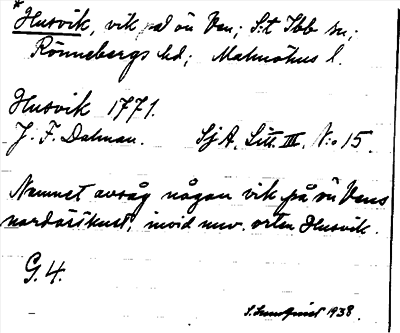 *Husvik, vik på ön Ven; S:t Ibb sn;
Rönnebergs hd; Malmöhus l.
Husvik 1771.
J. F. Dalman. SjA, Litt. III, N:o 15.
Namnet avsåg någon vik på ön Vens
nordöstkust, invid nuv. orten Husvik.
G. 4.
S. Lundquist 1938.